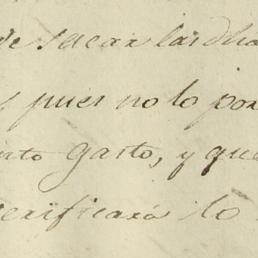 de sacar las dha
pues no lo por
nto gasto, y que
verificará lo